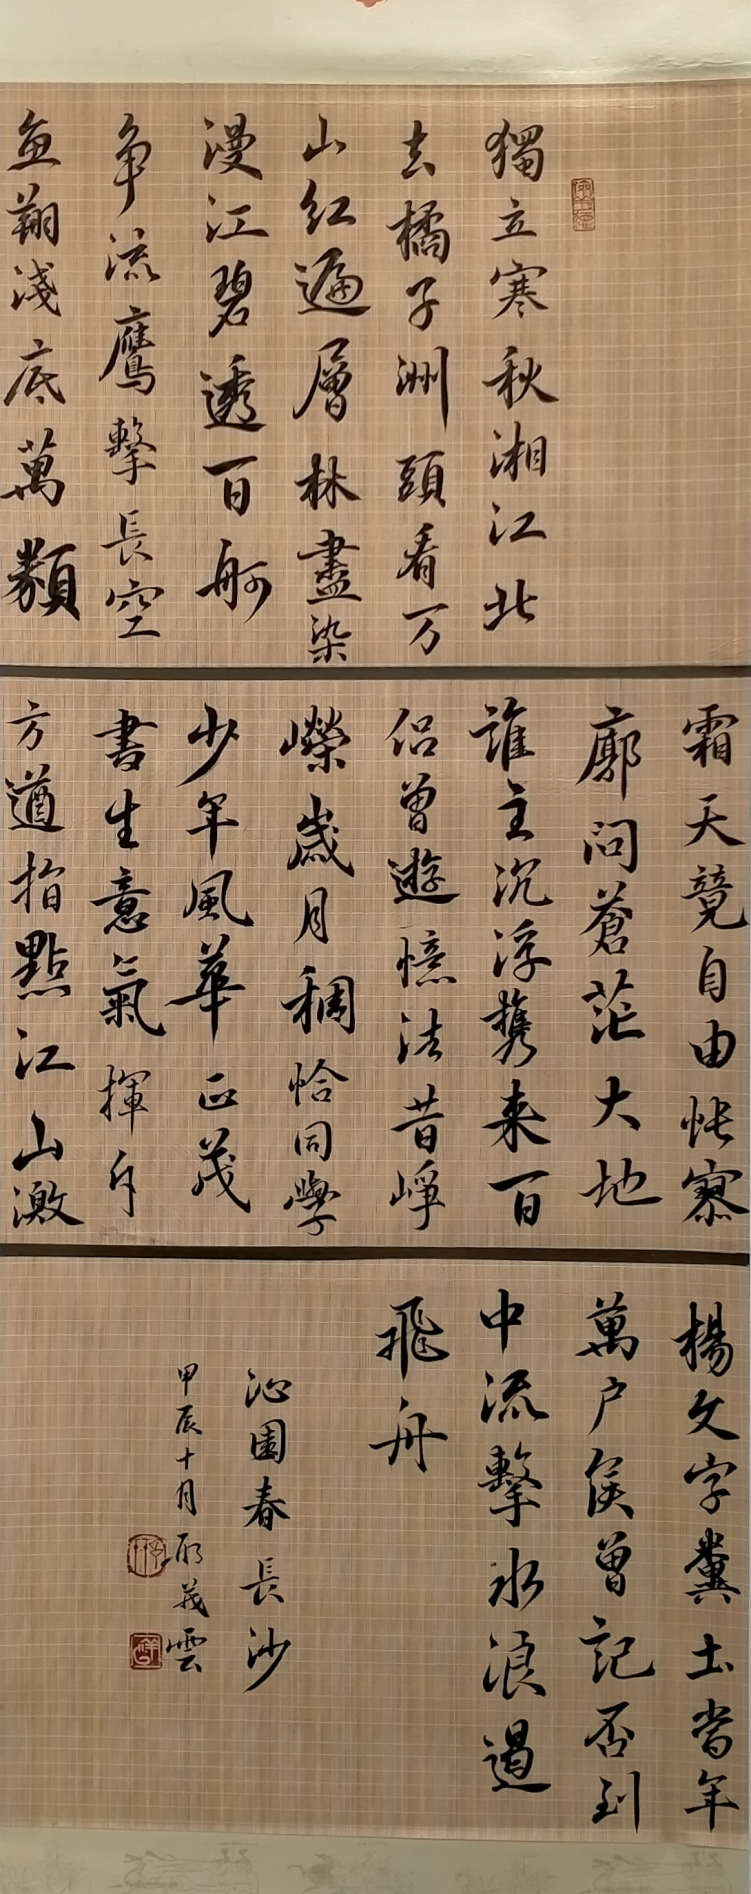 獨立寒秋湘江北
去橘子洲頭看万
山紅遍層林盡染
漫江碧透百舸
争流鷹擊長空
魚翔淺底萬類
霜天竟自由悵寥
廓問蒼茫大地
誰主沉浮携来百
侣曾遊憶往昔崢
嶸歲月稠恰同學
少年風華正茂
書生意氣揮斥
方遒指點江山激
楊文字糞土當年
萬户侯曾記否到
中流擊水浪遏
飛舟
沁園春長沙
甲辰十月雲